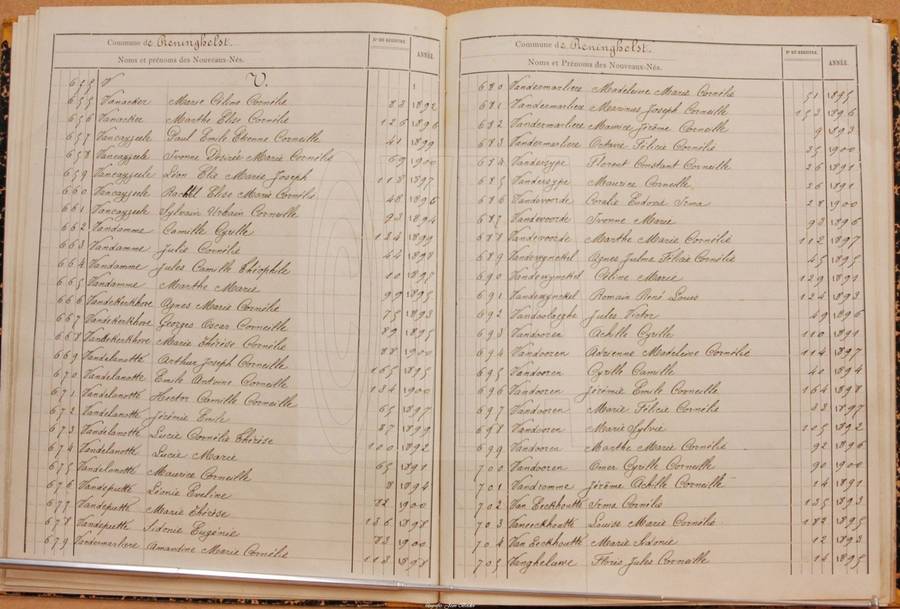 Commune de Reninghelst. Nº DU REGISTRE. ANNÉE.
Noms et prénoms des Nouveaux-Nés.
V.
655 Vanacker Marie Céline Cornélie 83 1892
656 Vanacker Marthe Elise Cornélie 126 1896
657 Vancayseele Paul Emile Etienne Corneille 41 1899
658 Vancayseele Ivonne Désirée Marie Cornélie 69 1900
659 Vancayseele Léon Elie Marie Joseph 118 1897
660 Vancayseele Rachel Elise Marie Cornélie 48 1896
661 Vancayseele Sylvain Urbain Corneille 93 1894
662 Vandamme Camille Cyrille 134 1899
663 Vandamme Julie Cornélie 44 1898
664 Vandamme Jules Camille Théophile 10 1895
665 Vandamme Marthe Marie 99 1895
666 Vandekerkhove Agnes Marie Cornélie 75 1893
667 Vandekerkhove Georges Oscar Corneille 89 1895
668 Vandekerkhove Marie Thérèse Cornélie 88 1900
669 Vandelanotte Arthur Joseph Corneille 165 1895
670 Vandelanotte Emile Antoine Corneille 134 1900
671 Vandelanotte Hector Camille Corneille 65 1897
672 Vandelanotte Jérémie Emile 87 1899
673 Vandelanotte Lucie Cornélie Thérèse 100 1892
674 Vandelanotte Lucie Marie 65 1891
675 Vandelanotte Maurice Corneille 8 1894
676 Vandeputte Léonie Eveline 82 1900
677 Vandeputte Marie Thérèse 136 1898
678 Vandeputte Sidonie Eugénie 83 1900
679 Vandermarliere Amandine Marie Cornélie 113 1898
Commune de Reninghelst. Nº DU REGISTRE. ANNÉE.
Noms et Prénoms des Nouveaux-Nés.
680 Vandermarliere Madeleine Marie Cornélie 51 1895
681 Vandermarliere Joseph Corneille 153 1896
682 Vandermarliere Maurice Jérôme Corneille 9 1893
683 Vandermarliere Octavie Félicie Cornélie 35 1900
684 Vandersype Florent Constant Corneille 26 1891
685 Vandersype Maurice Corneille 26 1891
686 Vandevoorde Coralie Eudoxie Irma 28 1900
687 Vandevoorde Ivonne Marie 93 1896
688 Vandevoorde Marthe Marie Cornélie 112 1897
689 Vandewynckel Agnes Julma Félicie Cornélie 45 1895
690 Vandewynckel Céline Marie 129 1891
691 Vandewynckel Romain René Louis 124 1893
692 Jules Victor 49 1896
693 Vandooren Achille Cyrille 110 1891
694 Vandooren Adrienne Madeleine Cornélie 114 1897
695 Vandooren Cyrille Camille 40 1894
696 Vandooren Jérémie Emile Corneille 164 1898
697 Vandooren Marie Félicie Cornélie 33 1897
698 Vandooren Marie Sylvie 105 1892
699 Vandooren Marthe Marie Cornélie 92 1896
700 Vandooren Omer Cyrille Corneille 90 1900
701 Vandromme Jérôme Achille Corneille 14 1891
702 Van Eeckhoutte Irma Cornélie 135 1893
703 Vaneeckhoutte Louise Marie Cornélie 182 1895
704 Van Eeckhoutte Marie Sidonie 12 1893
705 Vangheluwe Floris Jules Corneille 14 1895